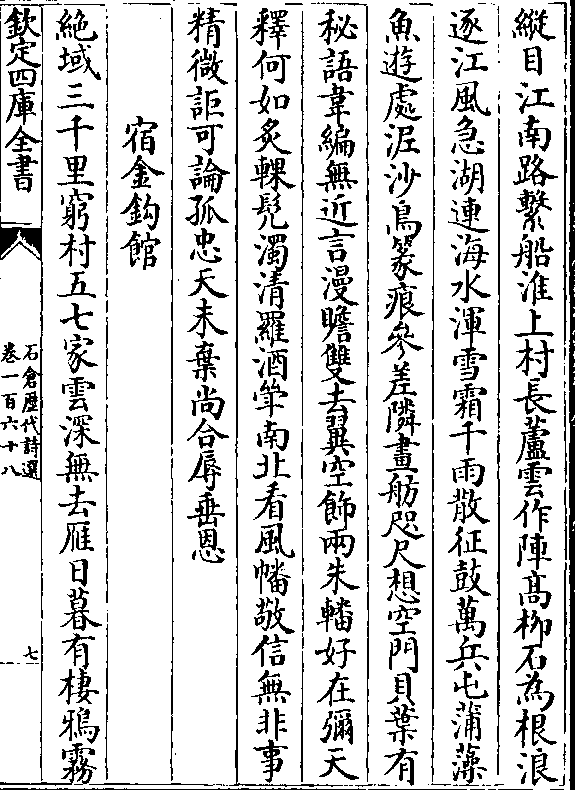 縱目江南路繫船淮上村長蘆雲作陣髙栁石為根浪
逐江風急湖連海水渾雪霜千雨散征鼓萬兵屯蒲藻
魚遊處泥沙鳥篆痕參差隣畫舫咫尺想空門貝葉有
秘語韋編無近言漫瞻雙去翼空飾兩朱轓好在彌天
釋何如炙輠髠濁清羅酒筭南北看風幡敬信無非事
精微詎可論孤忠天未棄尚合辱垂恩
宿金鈎館
絶域三千里窮村五七家雲深無去雁日暮有棲鴉霧
欽定四庫全書
石倉歴代詩選
卷一百六十八
七